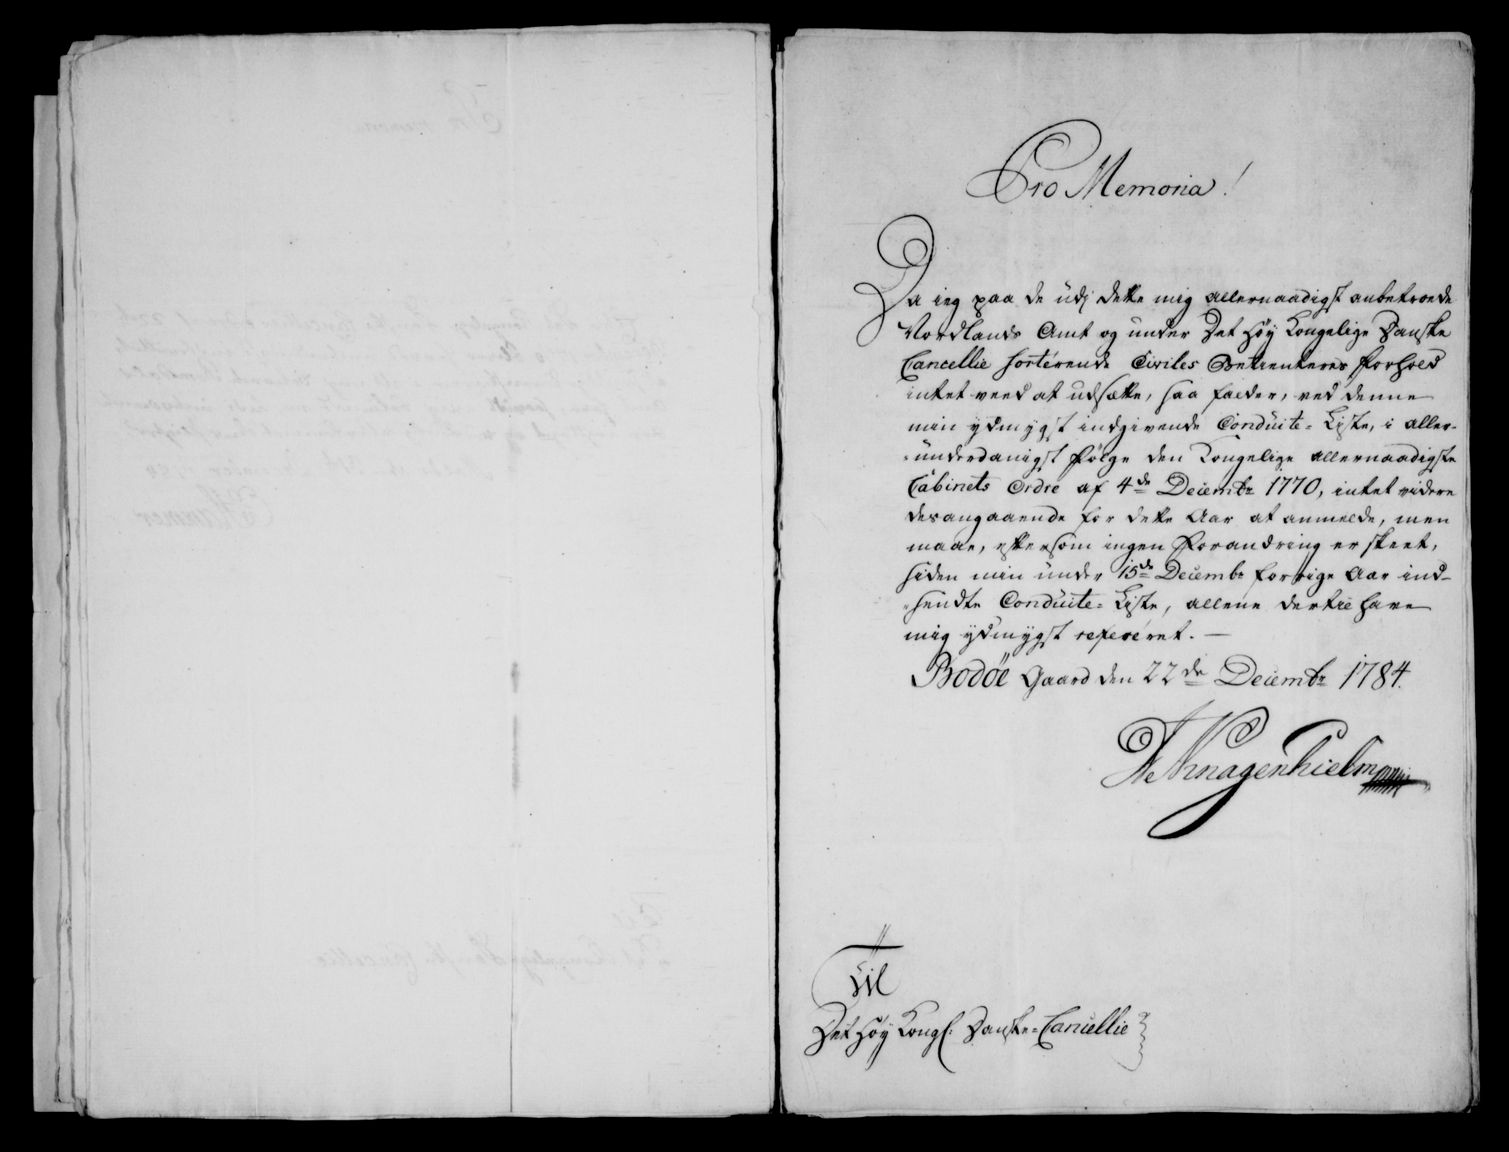 Pro Memoria!
Da ieg paa de udj dette mig allernaadigst anbetroede
Nordlands Amt og under Det Høy Kongelige Danske
Cancellie sorterende Civiles Betienteres forhold
intet veed at udsætte, saa falder, ved denne
min ydmygst indgivende Conduite-Liste, i aller-
-underdanigst følge den Kongelige allernaadigste
Cabinets Ordre af 4de Decembr 1770, intet videre
desangaaende for dette Aar at anmelde, men
maae, eftersom ingen forandring er skeet,
siden min under 15de Decembr forrige Aar ind-
-sendte Conduite-Liste, allene dertil have
mig ydmygst referéret. —
Bodøe Gaard den 22de Decembr 1784.
Knagenhielm
Til
Det Høy Kongl: Danske-Cancellie